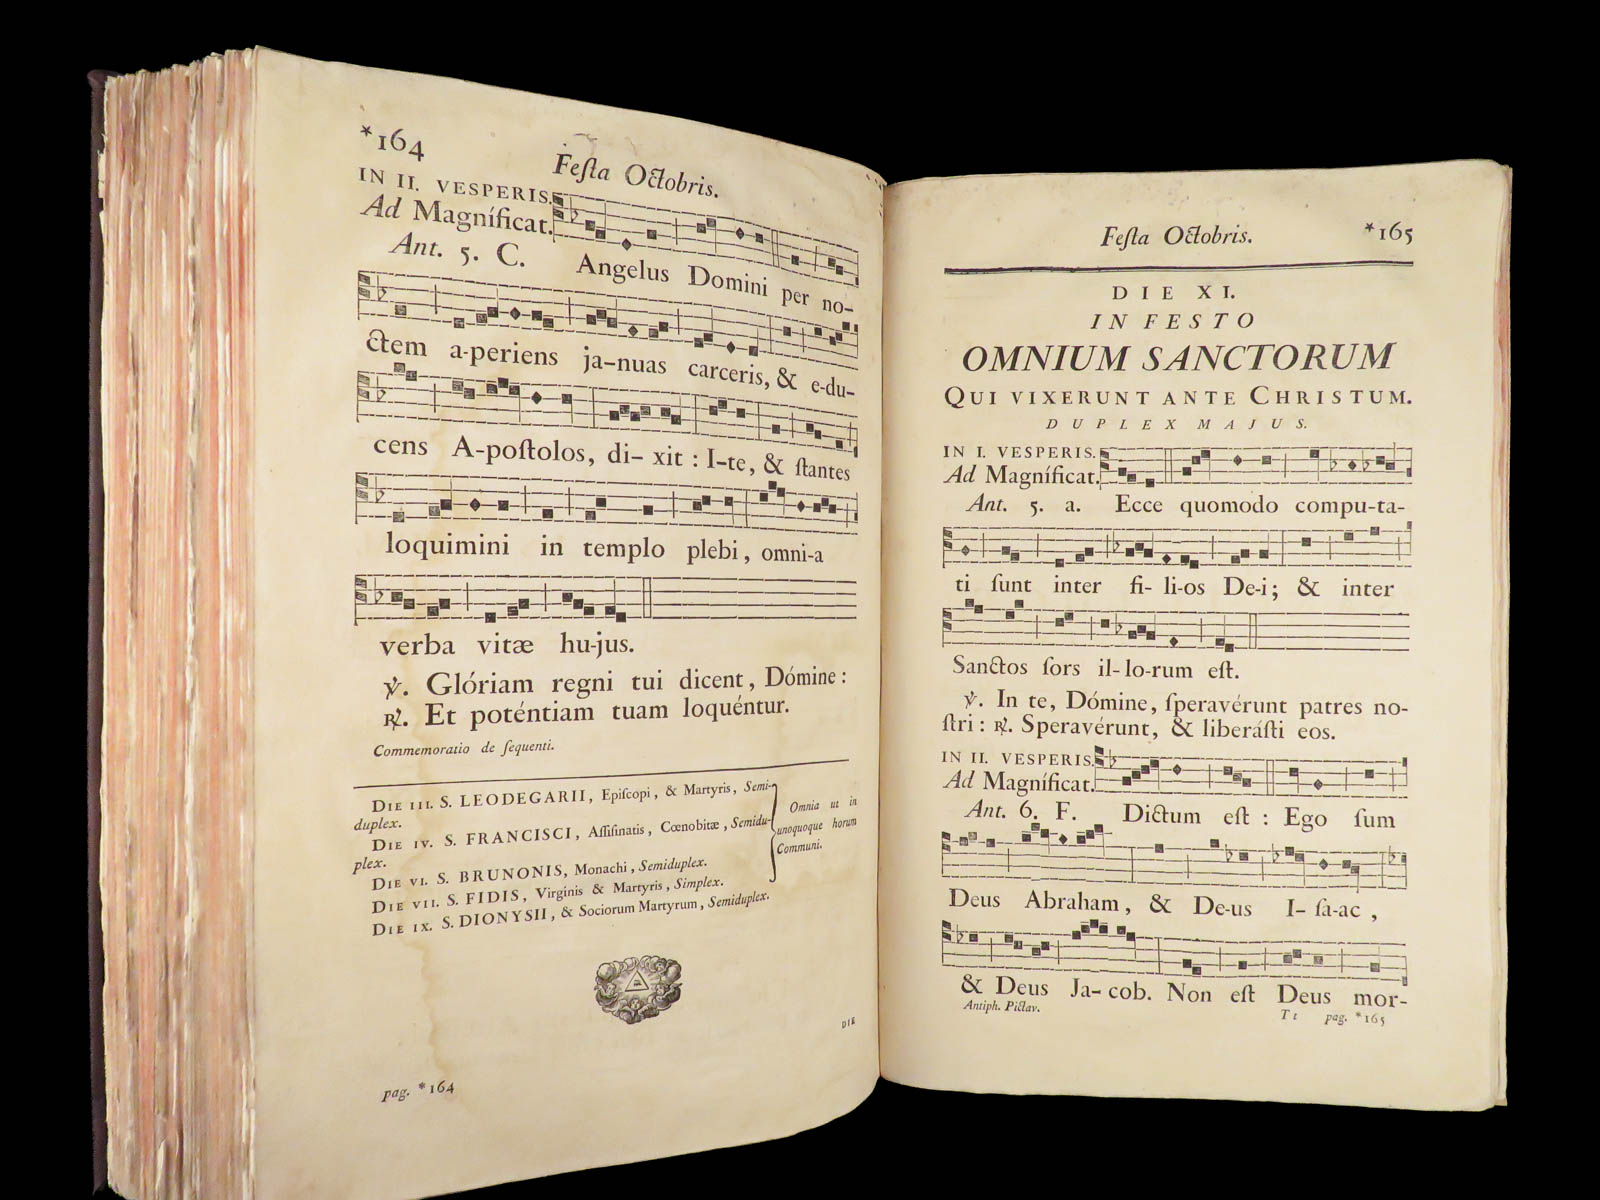 *164
Festa Octobris.
IN II. VESPERIS.
Ad Magníficat.
Ant. 5. C.
Angelus Domini per no-
ctem a-periens ja-nuas carceris, & e-du-
cens A-postolos, di- xit : I-te, & stantes
loquimini in templo plebi, omni-a
verba vitæ hu-jus.
℣. Glóriam regni tui dicent, Dómine :
℟. Et poténtiam tuam loquéntur.
Commemoratio de sequenti.
DIE III. S. LEODEGARII, Episcopi, & Martyris, Semi-
duplex.
DIE IV. S. FRANCISCI, Assisinatis, Cœnobitæ, Semidu-
plex.
DIE VI. S. BRUNONIS, Monachi, Semiduplex.
DIE VII. S. FIDIS, Virginis & Martyris, Simplex.
DIE IX. S. DIONYSII, & Sociorum Martyrum, Semiduplex.
Omnia ut in
unoquoque horum
Communi.
DIE
pag. *164
Festa Octobris.
*165
DIE XI.
IN FESTO
OMNIUM SANCTORUM
QUI VIXERUNT ANTE CHRISTUM.
DUPLEX MAJUS.
IN I. VESPERIS.
Ad Magníficat.
Ant. 5. a. Ecce quomodo compu-ta-
ti sunt inter fi- li-os De-i ; & inter
Sanctos sors il-lo-rum est.
℣. In te, Dómine, speravérunt patres no-
stri : ℟. Speravérunt, & liberásti eos.
IN II. VESPERIS.
Ad Magníficat.
Ant. 6. F. Dictum est : Ego sum
Deus Abraham, & De-us I- sa-ac,
& Deus Ja- cob. Non est Deus mor-
Antiph. Pictav.
T t pag. *165